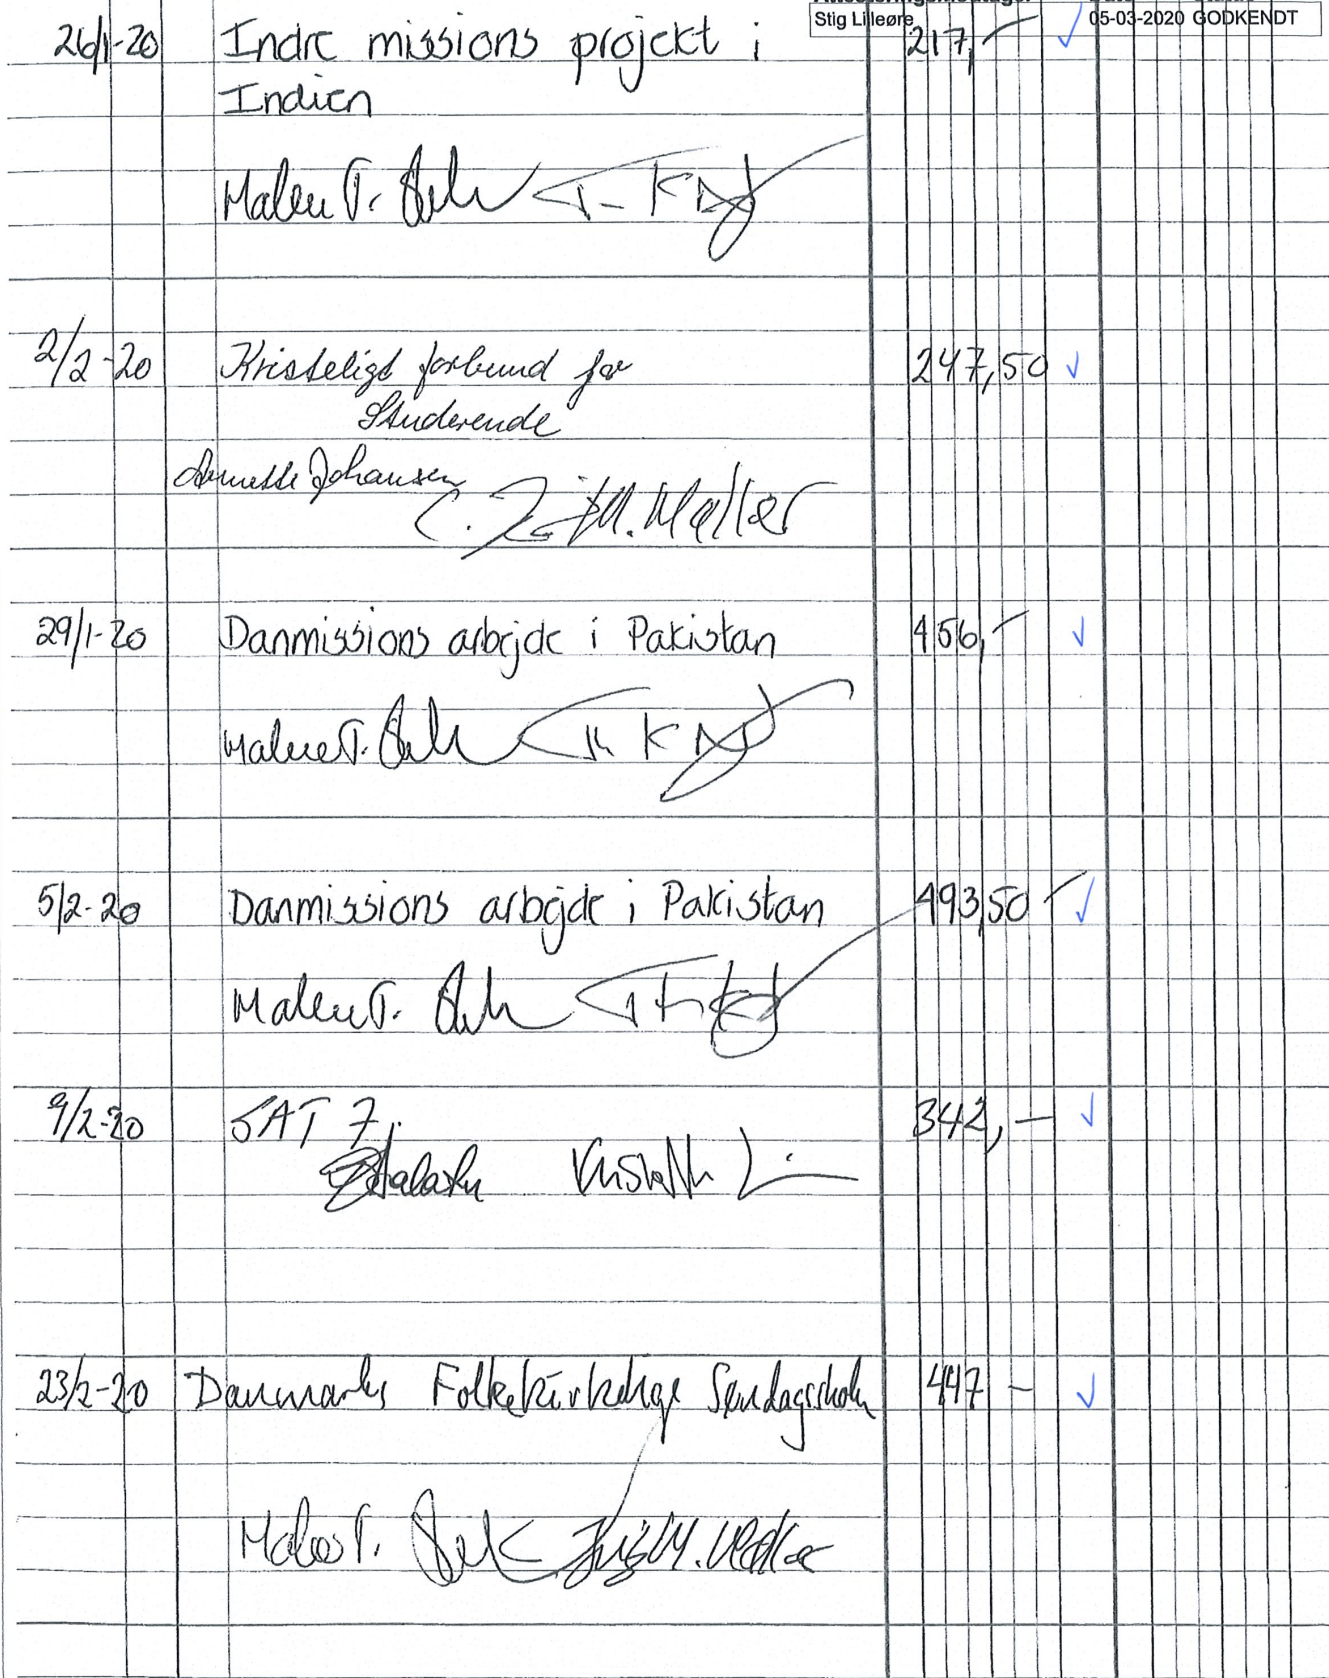 Stig Lilleøre 05-03-2020 GODKENDT
26/1-20 Indre missions projekt i 217,-
Indien
Malene T.
2/2-20 Kristeligt forbund for 247,50
Studerende
Annette Johansen
M. Møller
29/1-20 Danmissions arbejde i Pakistan 456,-
Malene T.
5/2-20 Danmissions arbejde i Pakistan 493,50 -
Malene T.
9/2-20 SAT 7. 342,-
23/2-20 Danmarks Folkekirkelige Søndagsskoler 447 -
Malene T. M. Møller